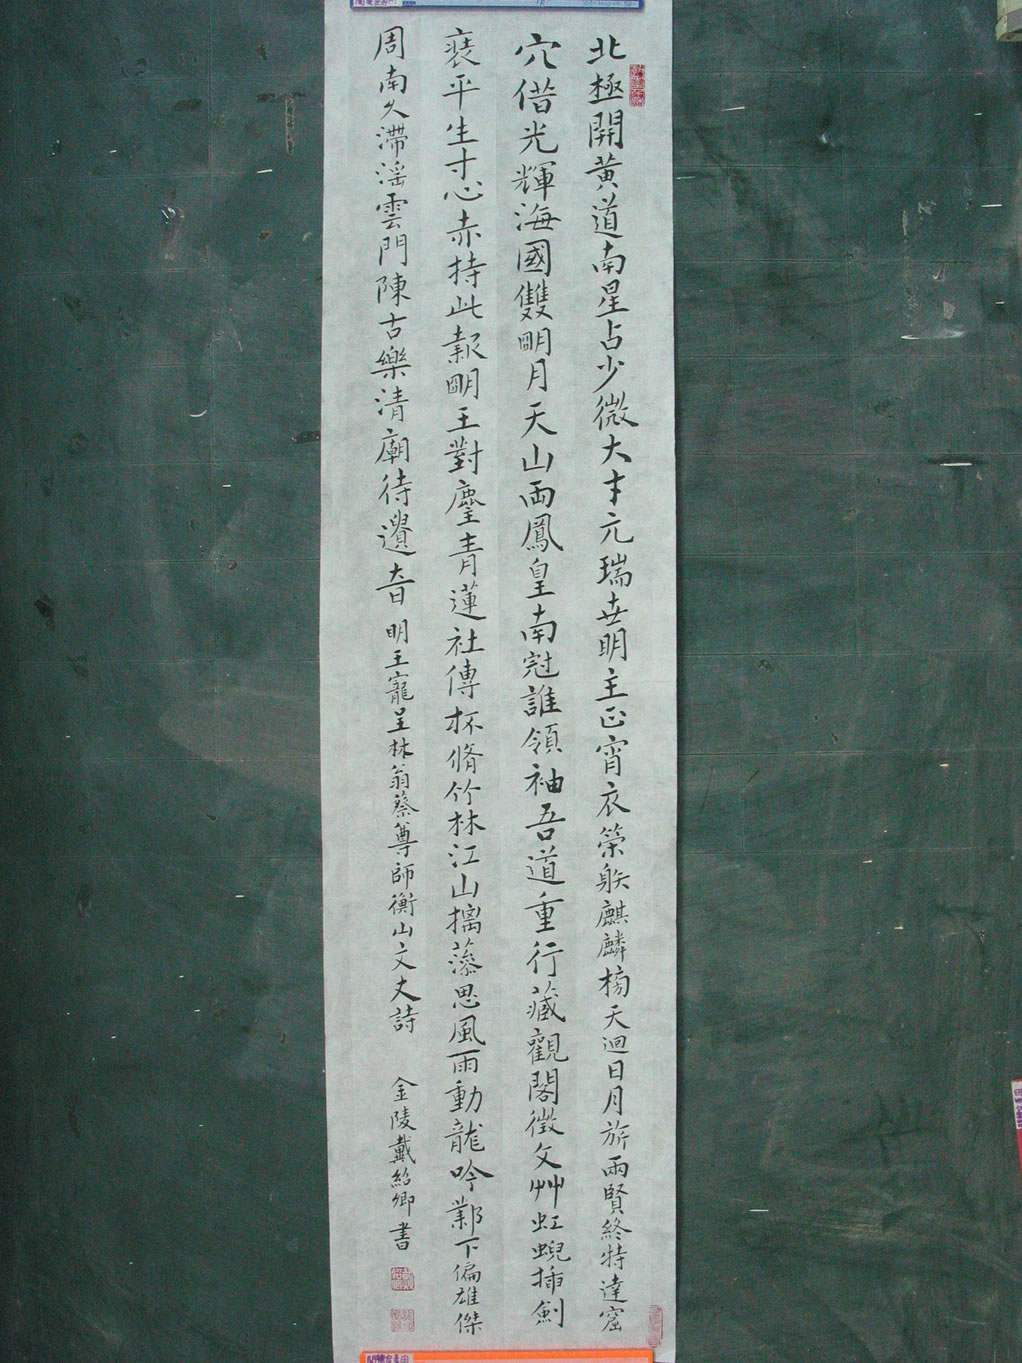 北極開黃道南星占少微大才元瑞世明主正宵衣榮躲麒麟榜天迴日月旂兩賢終特達窟
穴借光輝海國雙朙月天山兩鳳皇南冠誰領袖吾道重行藏觀閣徵文艸虹蜺插劍
裝平生寸心赤持此報朙王對麈青蓮社傳杯脩竹林江山摛藻思風雨動龍吟鄴下偏雄傑
周南久滯淫雲門陳古樂清廟待遺音 明王寵呈林翁蔡尊師衡山文丈詩 金陵戴紹卿書